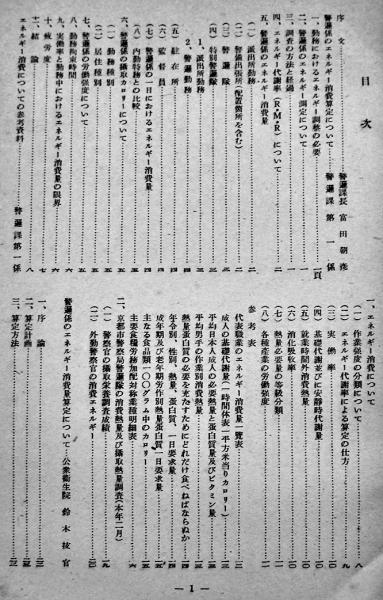 目次
序文……………警邏課長 富田朝彦
警邏係のエネルギー消費算定について……警邏課第一係
一、勤務におけるエネルギー調整の必要……一頁
二、警邏係のエネルギー測定について……一
三、調査の方法と経過……一
四、エネルギー代謝率(R・M・R)について……二
五、警邏係のエネルギー消費量
(一) 派出所勤務……二
(二) 警部派出所(配置箇所を含む)……二
(三) 警邏隊
(四) 特別警邏隊
1、派出所勤務
2、警邏勤務
(五) 駐在所
(六) 監督員
(七) 警邏係の一日におけるエネルギー消費量
(八) 内勤特務との比較
六、警邏係の摂取カロリーについて
(一) 勤務種別
(二) 居住種別
七、警邏係の労働強度について
八、勤務拘束時間
九、実働率と勤務中におけるエネルギー消費量の限界
十、疲労度
十一、結論……八
エネルギー消費についての参考資料……警邏課第一係
一、エネルギー消費について……八
(一) 作業強度の分類について
(二) エネルギー代謝率による算定の仕方……九
(三) 実働率
(四) 基礎代謝並びに安静時代謝量
(五) 就業時間外消費熱量
(六) 消化吸収率
(七) 熱量必要量の等級分類
(八) 各種産業の労働強度
参考表
代表職業のエネルギー消費量一覧表
成人の基礎代謝量(一時間体表一平方米当りカロリー)
平均日本人成人の必要熱量と蛋白質量及びビタミン量
平均男子の作業別消費熱量
熱量蛋白質の必要を充たすためにどれだけ食べねばならぬか
年令別、性別、熱量、蛋白質、一日要求量
成年期及び老年期労作別熱量蛋白質一日要求量
主なる食品類一〇〇グラム中のカロリー
主要食糧労務加配対称業種明細表
二、京都市警察局警邏隊の消費熱量及び摂取熱量調査(本年二月)
(一) 警察官の摂取栄養調査成績
(二) 外勤警察官の消費エネルギー
警邏係のエネルギー消費量算定について……公衆衛生院 鈴木技官
一、序論
二、算定計画
三、算定方法
— 1 —